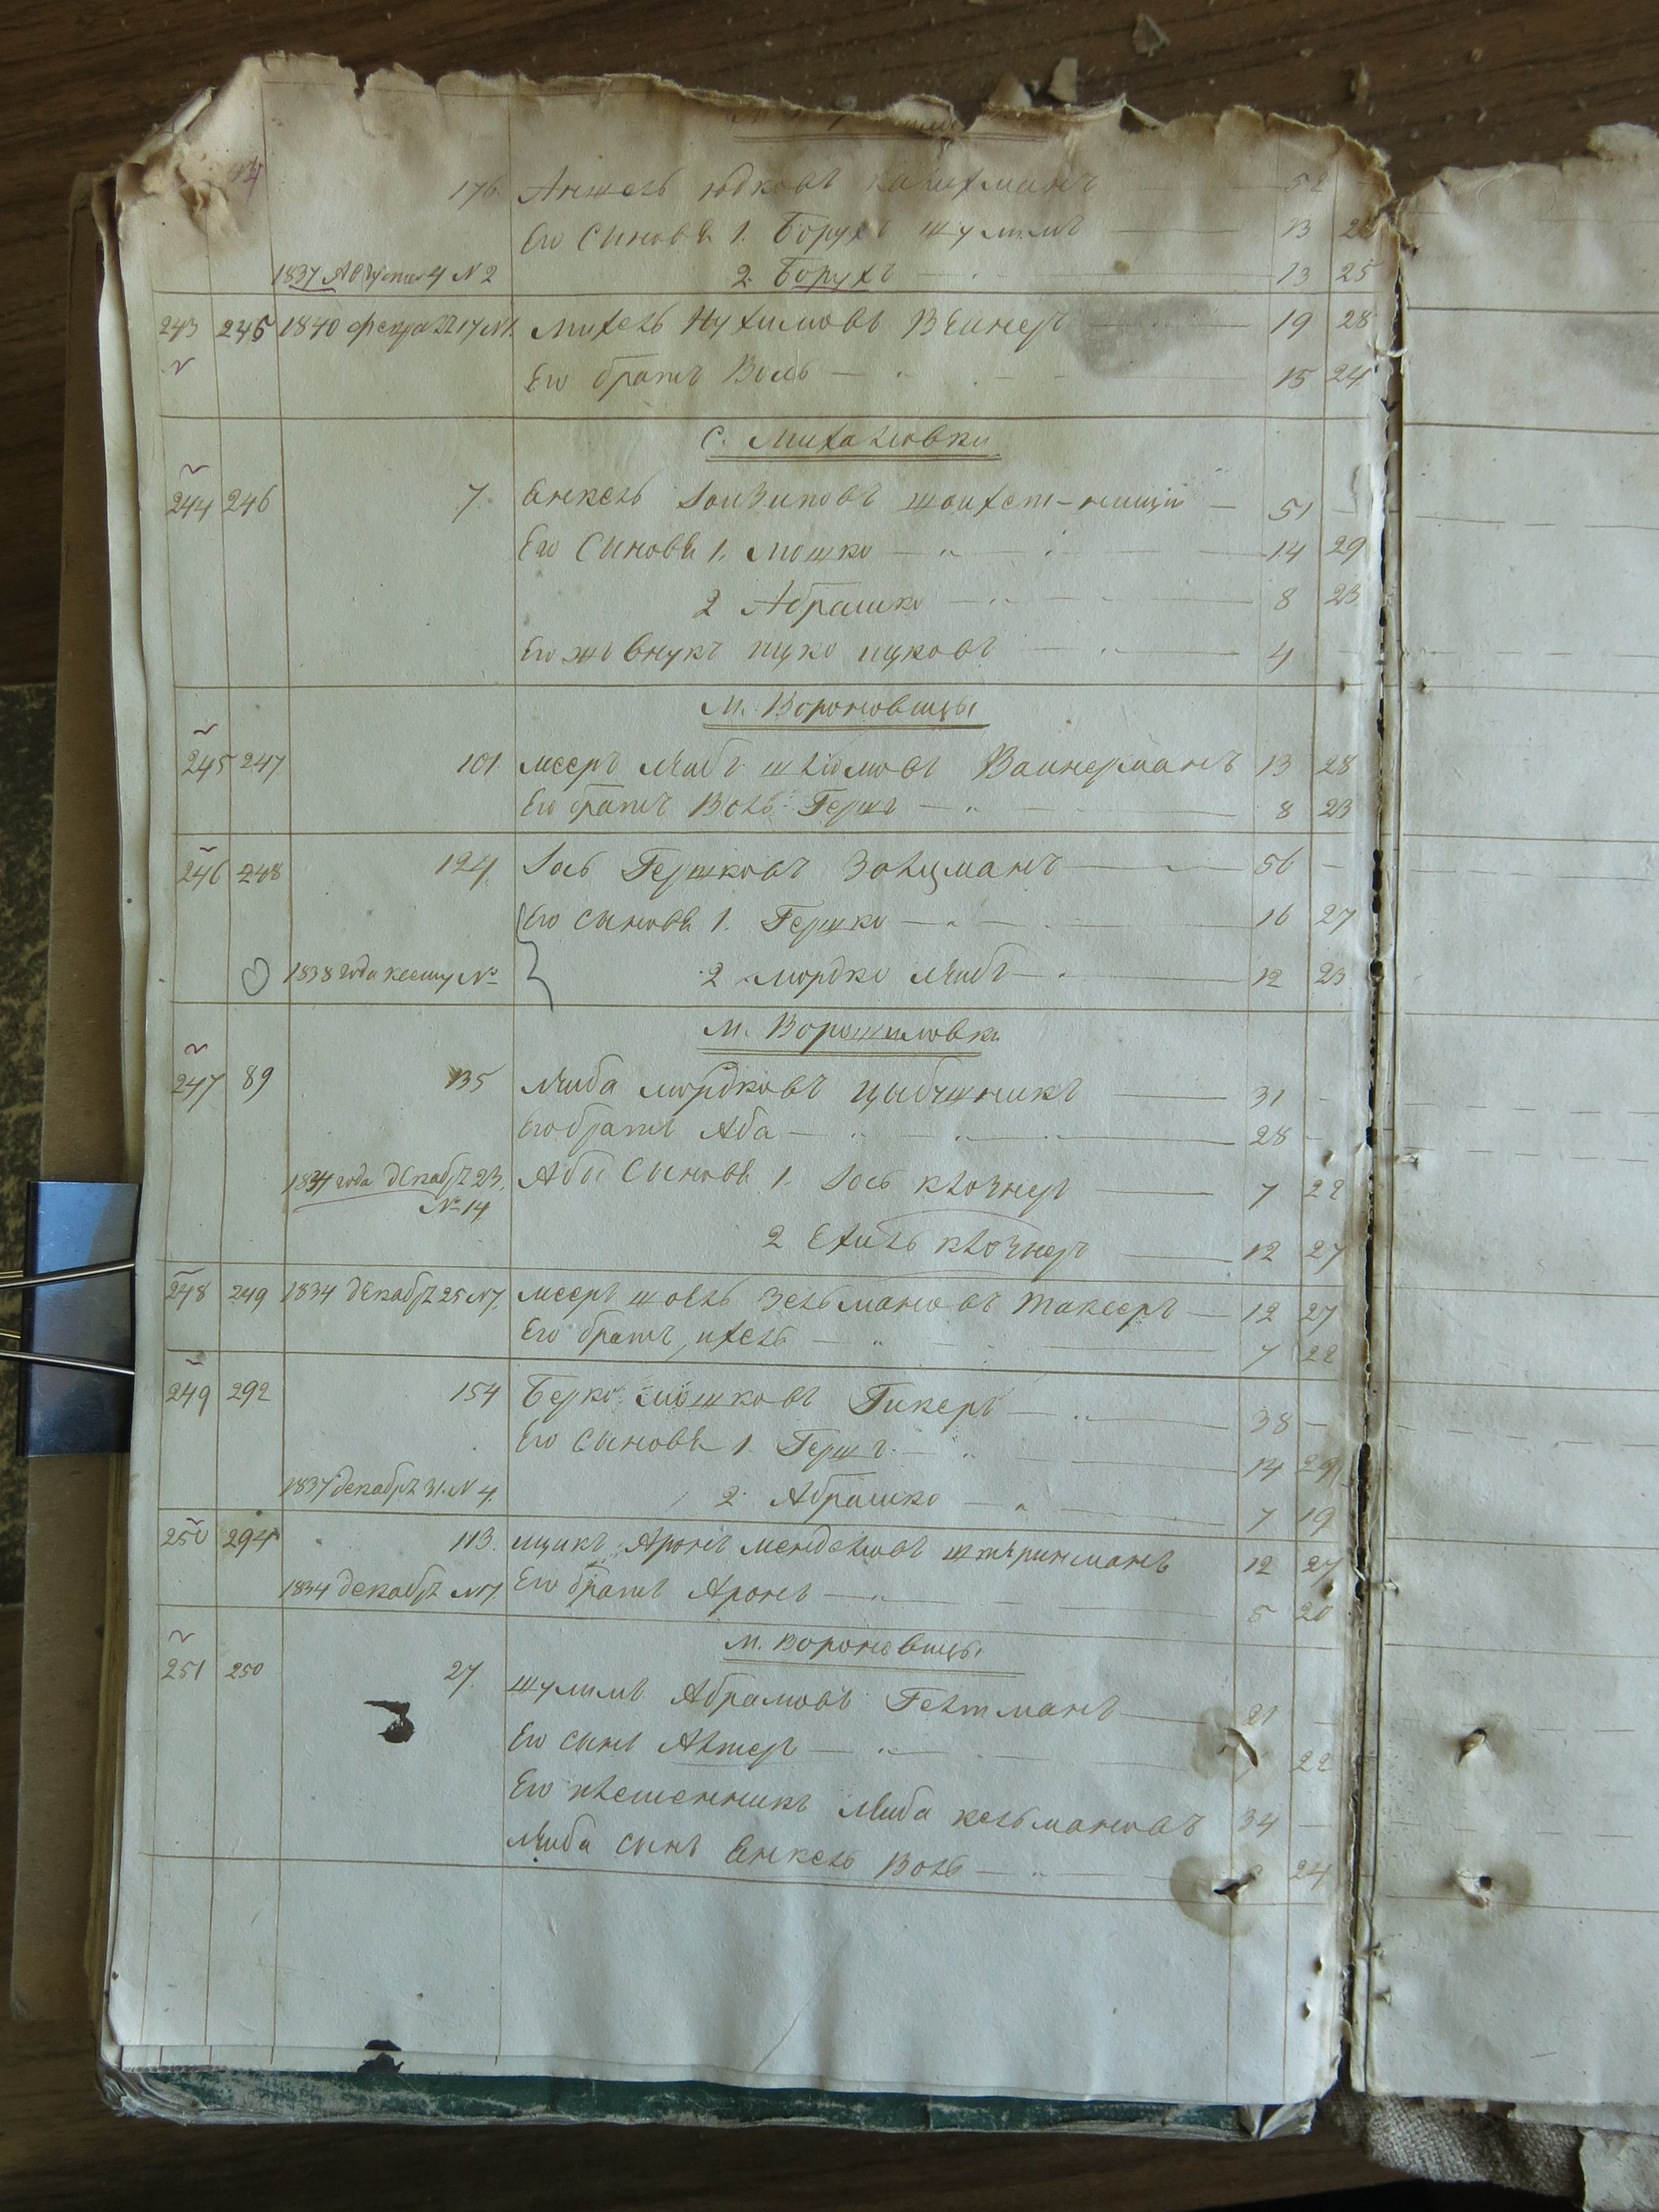 176 Анжель Юдковъ 52
Его Сыновья 1. Борухъ Шулимъ 13 28
1837 Августа 4 N 2 2. Борухъ 13 25
243 245 1840 N1. Михель Нухимовъ Вейнеръ 19 28
Его братъ Воль — " — 15 24
С. Михаловки
244 246 7. Янкель Шойхет-нищій — 51 —
Его Сыновья 1. Мошко — " — 14 29
2 Абрашко — " — 8 23
Его жъ внукъ Ицко Ицковъ — 4 —
М. Вороновицы
245 247 101 Мееръ Лейбъ Шліомовъ Вайнерманъ 13 28
Его братъ Воль Гершъ — " — 8 23
246 248 124. Іось Гершковъ Зальцманъ — 56 —
Его Сыновья 1. Гершко — " — 16 27
1838 года N 2 Мордко Лейбъ — 12 23
М. Ворошиловки
247 89 135 Лейба Мордковъ 31 —
Его братъ Аба — " — " — 28 —
1834 года Декабр 23. Абы Сыновья 1. Іось Ключнеръ — 7 22
N 14
2 Ехиль Ключнеръ — 12 27
248 249 1834 Декабр 25 N7. Мееръ Шоель Зельмановъ Такееръ — 12 27
Его братъ Ихель — " — 7 22
249 292 154 Берко Мошковъ Гикеръ — " — 38 —
Его Сыновья 1. Гершъ — " — 14 29
1837 декабр 31. N 4. 2. Абрашко — " — 7 19
250 294 113. Ицикъ Аронъ Менделювъ Штеринманъ 12 27
1834 декабр N7. Его братъ Аронъ — " — 5 20
М. Вороновицы
251 250 27. Шулимъ Абрамовъ Гелтманъ — 21 —
Его Сынъ Алтеръ — " — 22
Его племенникъ Лейба Кельмановъ 34 —
Лейба Сынъ Янкель Воль — " — 24